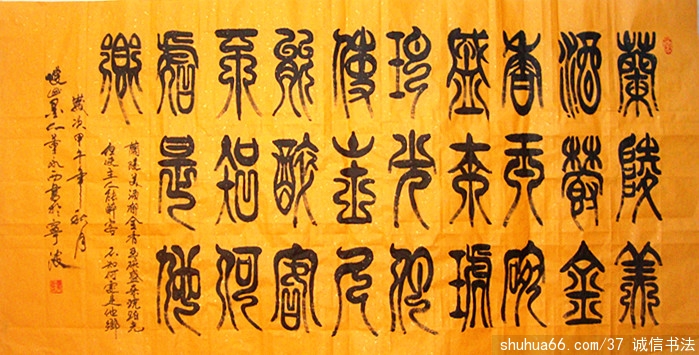 蘭陵美
酒鬱金
香玉碗
盛來琥
珀光但
使主人
能醉客
不知何
處是他
鄉
蘭陵美酒鬱金香玉碗盛來琥珀光
但使主人能醉客 不知何處是他鄉
歲次甲午年秋月
書於寧波
shuhua66.com/37 诚信书法